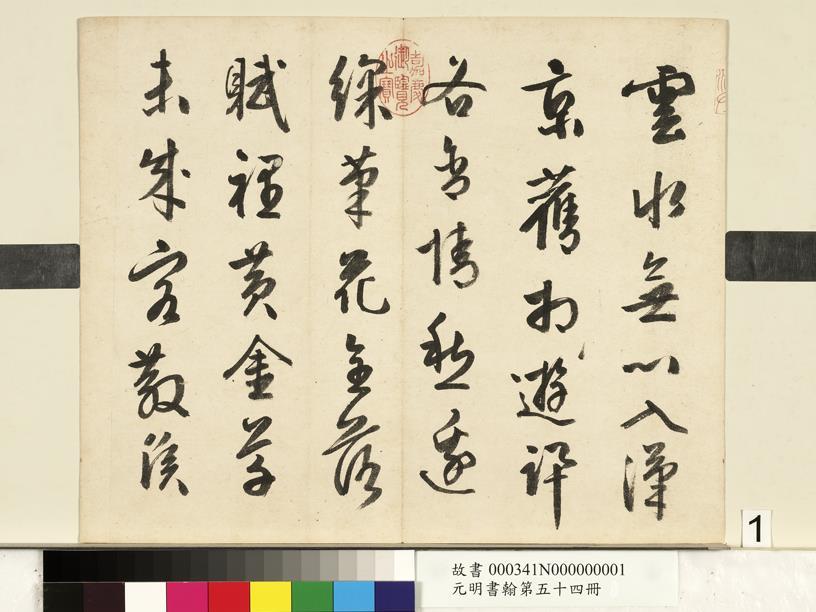 雲水無心入漢
京舊遊
各含情愁邊
綵筆花全落
賦裡黃金草
未成客散侯
嘉慶御覽之寶
1
故書 000341N000000001
元明書翰第五十四冊